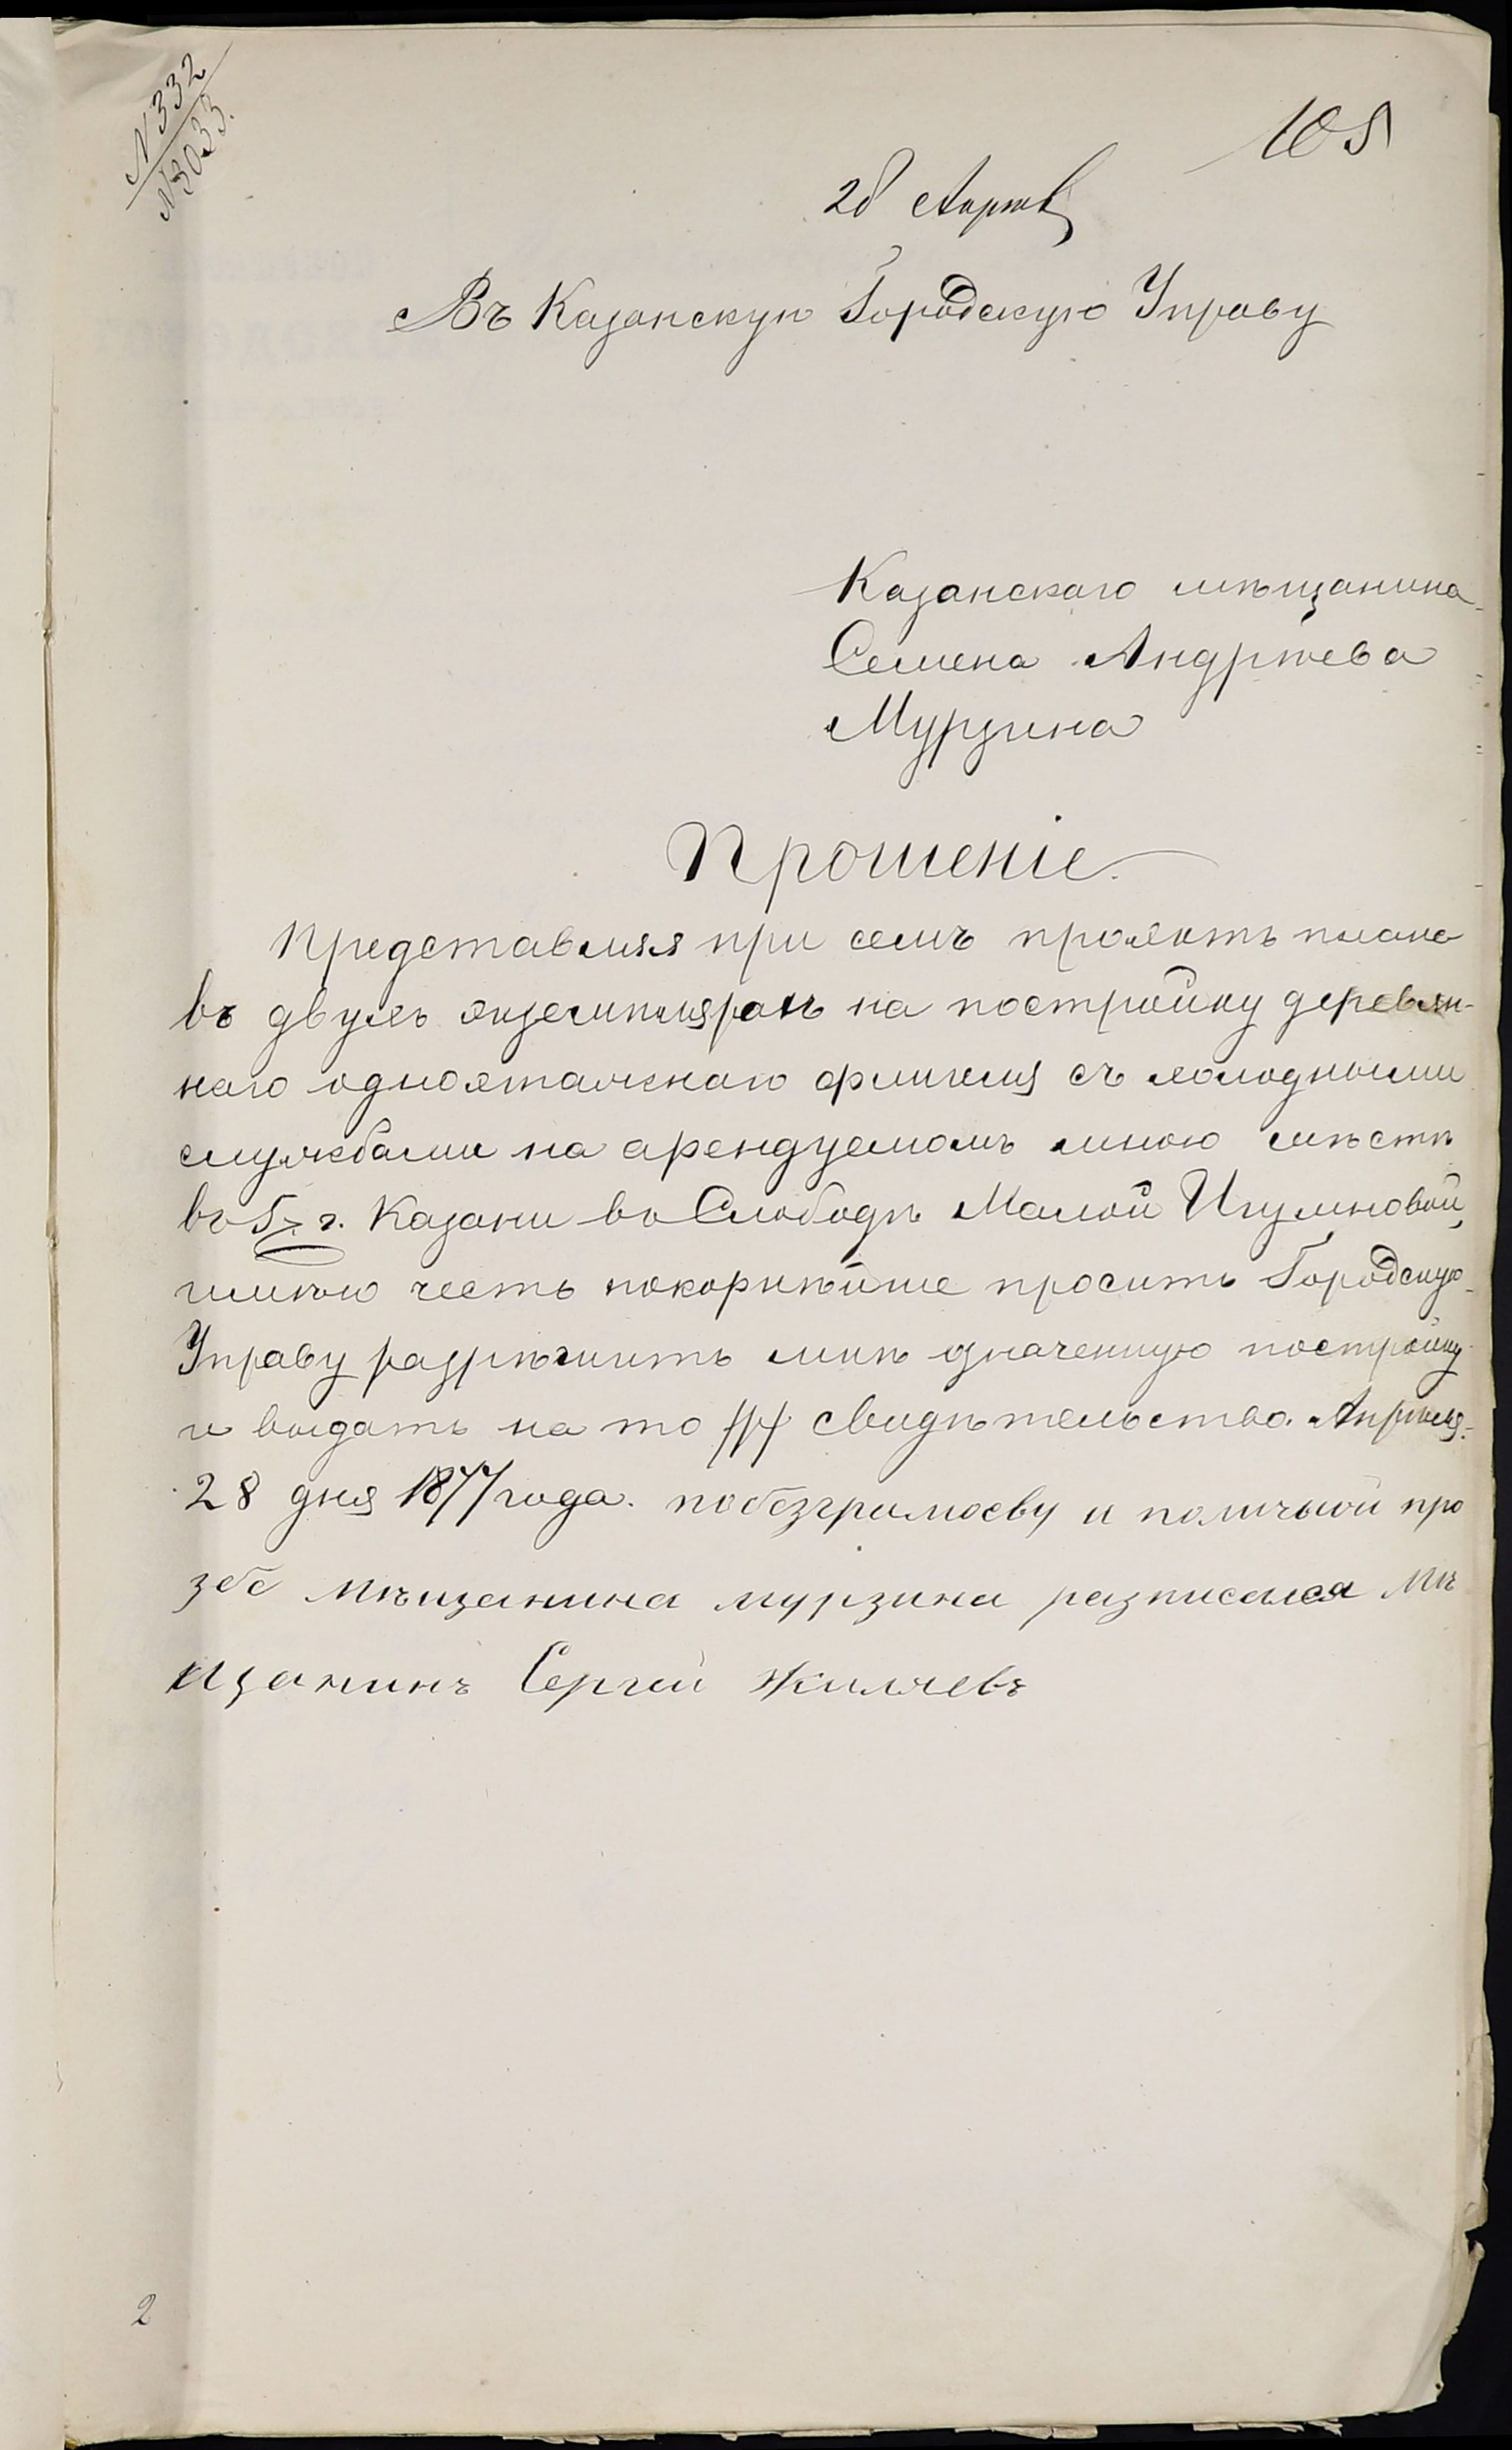 N 332
N 3033.
105
28 Апрѣл
Въ Казанскую Городскую Управу
Казанскаго мѣщанина
Семена Андрѣева
Мурзина
Прошеніе.
Представляя при семъ проэктъ плана
въ двухъ экземплярахъ на постройку деревян-
наго одноэтажнаго флигеля съ холодными
службами на арендуемомъ мною мѣстѣ
въ 5 г. Казани въ Слободѣ Малой Игумновой,
имѣю честь покорнѣйше просить Городскую
Управу разрѣшить мнѣ означенную постройку
и выдать на то свидѣтельство. Апрѣля
28 дня 1877 года. побезграмосву и поличьной про
збе мѣщанина мурзина разписался мѣ
щанинъ Сергей Жиляевъ
2